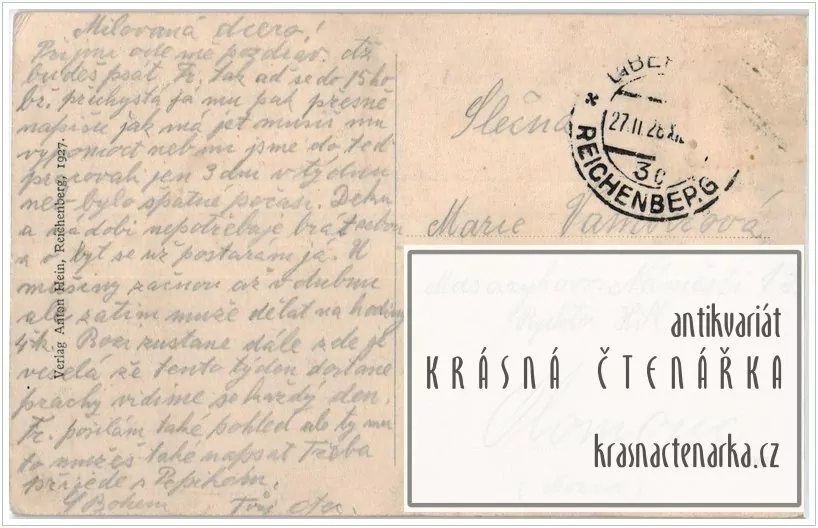 Milovaná dcero!
Přijmi ode mě pozdrav. Až
budeš psát Fr. tak ať se do 15ho
bř. přichystá já mu pak přesně
napíšu jak má jet musíš mu
vypomoct neb mi jsme do teď
pracovali jen 3 dni v týdnu
neb bylo špatné počasí. Deku
a nádobí nepotřebuje brát sebou
a o byt se už postarám já. U
mašiny začnou až v dubnu
ale zatím může dělat na hodiny
zustane dále zde je
veselá že tento týden dostane
prachy vidíme se každý den.
Fr. posílám také pohled ale ty mu
to můžeš také napsat Třeba
přijede s Pepíkom.
S Bohem Tvůj
Verlag Anton Hein, Reichenberg, 1927.
LIBE
27.II.28
3c
REICHENBERG
Slečna
Marie
Olomouc
antikvariát
KRÁSNÁ ČTENÁŘKA
krasnactenarka.cz